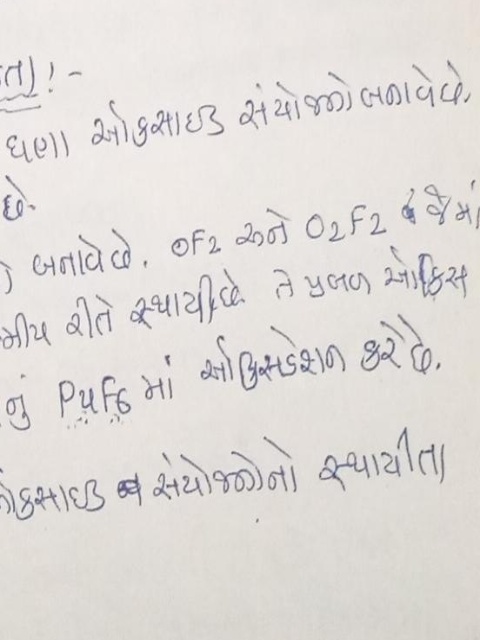 ઘણા ઓક્સાઇડ સંયોજનો બનાવે છે.
છે.
બનાવે છે. OF2 અને O2F2 જેમાં
રીતે સ્થાયી છે તે પ્રબળ ઓક્સિ
નું PuF6 માં ઓક્સિડેશન કરે છે.
ઓક્સાઇડ સંયોજનોનો સ્થાયીતા